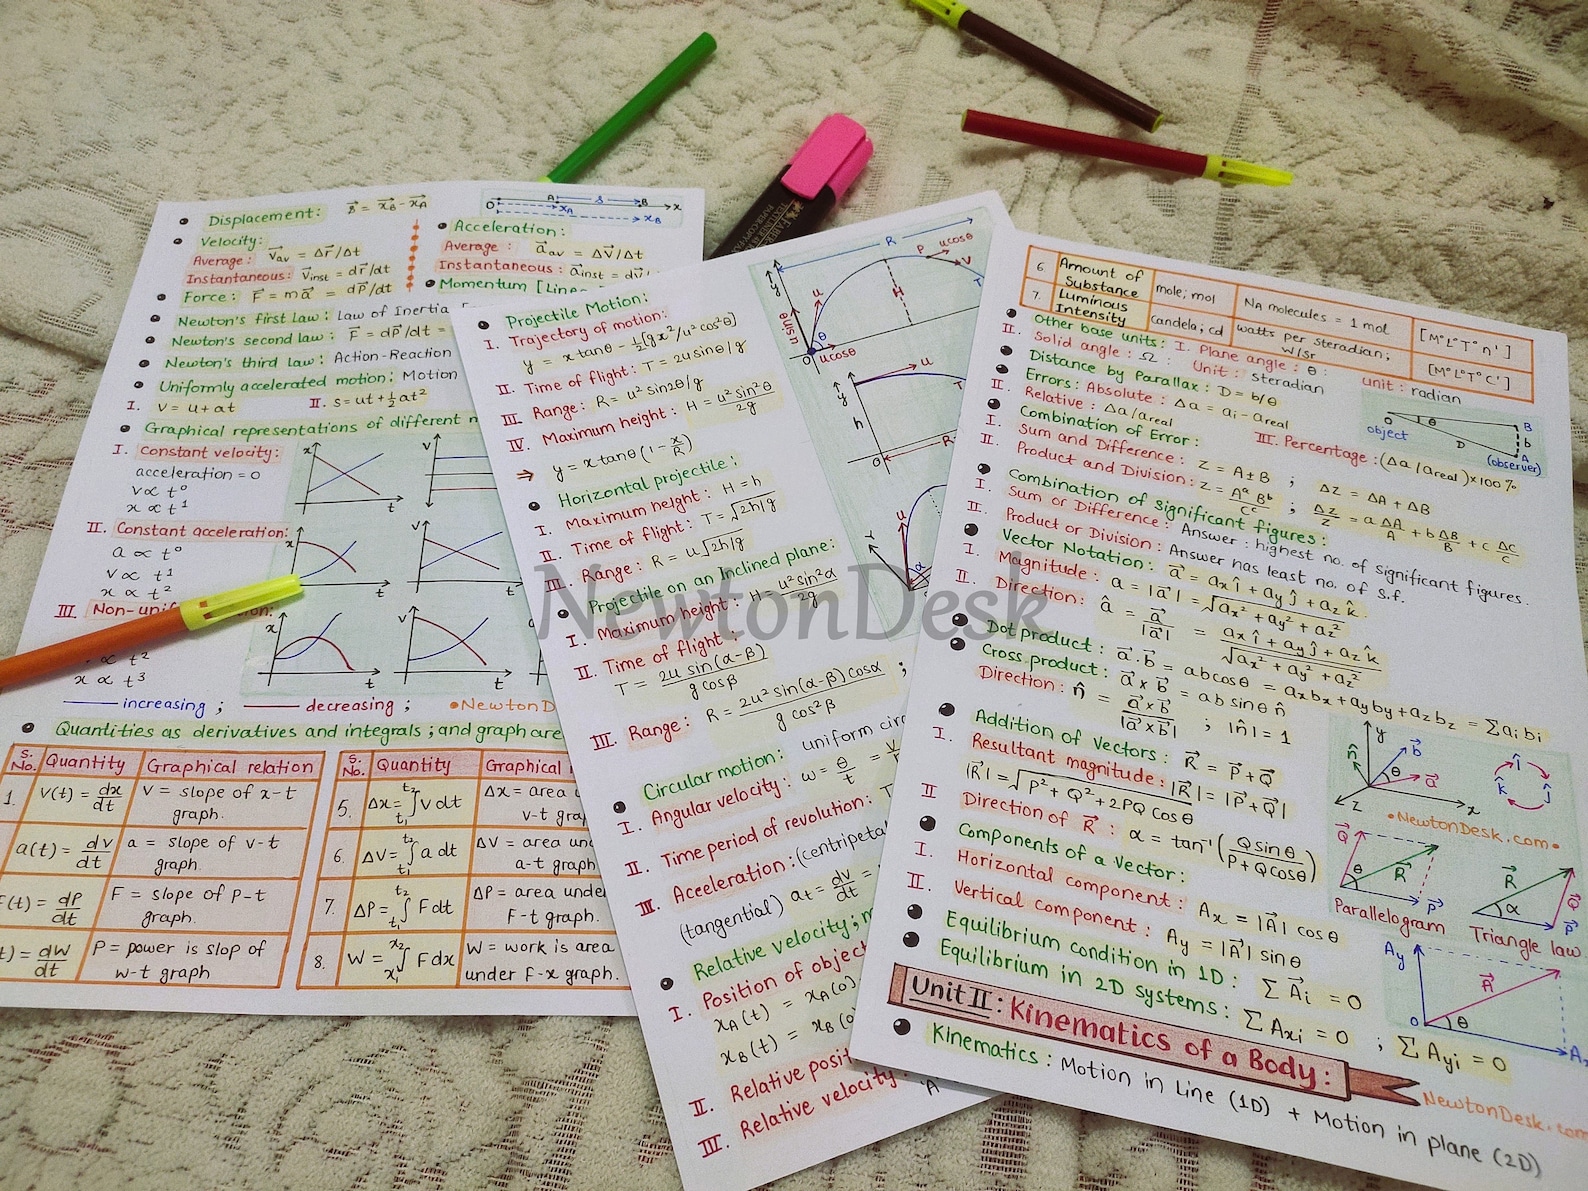 Displacement: s⃗ = x⃗B - x⃗A
O A s B x
xA
xB
Velocity:
Average: v⃗av = Δr⃗/Δt
Instantaneous: v⃗inst = dr⃗/dt
Acceleration:
Average: a⃗av = Δv⃗/Δt
Instantaneous: a⃗inst = dv⃗/
Force: F⃗ = ma⃗ = dP⃗/dt
Momentum [Line
Newton's first law: Law of Inertia
Newton's second law: F⃗ = dP⃗/dt =
Newton's third law: Action-Reaction
Uniformly accelerated motion: Motion
I. v = u + at II. s = ut + ½at²
Graphical representations of different
I. Constant velocity:
acceleration = 0
v ∝ t⁰
x ∝ t¹
II. Constant acceleration:
a ∝ t⁰
v ∝ t¹
x ∝ t²
III. Non-unif
∝ t²
x ∝ t³
x t
v
x t
v t
x t
v t
increasing ; decreasing ; •NewtonD
Quantities as derivatives and integrals; and graph are
S. No. Quantity Graphical relation
1. v(t) = dx/dt v = slope of x-t graph.
a(t) = dv/dt a = slope of v-t graph.
F(t) = dP/dt F = slope of P-t graph.
t) = dW/dt P = power is slop of w-t graph
S. No. Quantity Graphical
5. Δx = ∫t₁t₂ v dt Δx = area v-t graph
6. ΔV = ∫t₁t₂ a dt ΔV = area un a-t graph
7. ΔP = ∫t₁t₂ F dt ΔP = area under F-t graph.
8. W = ∫x₁x₂ F dx W = work is area under F-x graph.
Projectile Motion:
I. Trajectory of motion:
y = x tanθ - ½[gx²/u² cos²θ]
II. Time of flight: T = 2u sinθ/g
III. Range: R = u² sin2θ/g
IV. Maximum height: H = u² sin²θ/2g
⇒ y = x tanθ (1 - x/R)
Horizontal projectile;
I. Maximum height: H = h
II. Time of flight: T = √2h/g
III. Range: R = u√2h/g
Projectile on an Inclined plane:
I. Maximum height: H = u² sin²α/2g
II. Time of flight
T = 2u sin(α-β)/g cosβ ;
III. Range: R = 2u² sin(α-β) cosα/g cos²β
Circular motion: uniform circ
I. Angular velocity: ω = θ/t =
II. Time period of revolution: T
III. Acceleration: (centripeta
(tangential) at = dv/dt =
Relative velocity; m
I. Position of object
xA(t) = xA(0)
xB(t) = xB(0
II. Relative posit
III. Relative velocity
R
y u P ucosθ
v
H
u sinθ
θ
O ucosθ
u
y
h
O R
u
α
6. Amount of Substance mole; mol NA molecules = 1 mol [M⁰L⁰T⁰n¹]
7. Luminous Intensity candela; cd watts per steradian; W/Sr [M⁰L⁰T⁰C¹]
Other base units: I. Plane angle: θ: unit: radian
II. Solid angle: Ω: Unit: Steradian
Distance by Parallax: D = b/θ
Errors: Absolute: Δa = ai - areal
II. Relative: Δa/areal III. Percentage: (Δa/areal)×100%
Combination of Error:
I. Sum and Difference: Z = A ± B ; ΔZ = ΔA + ΔB
II. Product and Division: Z = Aᵃ Bᵇ/Cᶜ ; ΔZ/Z = a ΔA/A + b ΔB/B + c ΔC/C
Combination of significant figures:
I. Sum or Difference: Answer: highest no. of significant figures.
II. Product or Division: Answer has least no. of S.f.
Vector Notation: a⃗ = axî + ayĵ + azk̂
I. Magnitude: a = |a⃗| = √ax² + ay² + az²
II. Direction: â = a⃗/|a⃗| = axî + ayĵ + azk̂/√ax² + ay² + az²
Dot product: a⃗.b⃗ = ab cosθ = axbx + ayby + azbz = Σaibi
Cross product: a⃗×b⃗ = ab sinθ n̂
Direction: n̂ = a⃗×b⃗/|a⃗×b⃗| ; |n̂| = 1
Addition of Vectors: R⃗ = P⃗+Q⃗
I. Resultant magnitude: |R⃗| = |P⃗+Q⃗|
|R⃗| = √P² + Q² + 2PQ cosθ
II Direction of R⃗: α = tan⁻¹(Q sinθ/P+Q cosθ)
Components of a vector:
I. Horizontal component: Ax = |A⃗| cosθ
II. Vertical component: Ay = |A⃗| sinθ
Equilibrium condition in 1D: ΣA⃗i = 0
Equilibrium in 2D systems: ΣAxi = 0 ; ΣAyi = 0
Unit II: Kinematics of a Body:
NewtonDesk.com
Kinematics: Motion in Line (1D) + Motion in plane (2D)
O θ B
object D b
A
(observer)
y
n̂ b⃗
θ a⃗
z x
î
k̂ ĵ
•NewtonDesk.com•
Q⃗ R⃗
θ P⃗
Parallelogram
R⃗ Q⃗
α P⃗
Triangle law
Ay
A⃗
O θ
NewtonDesk